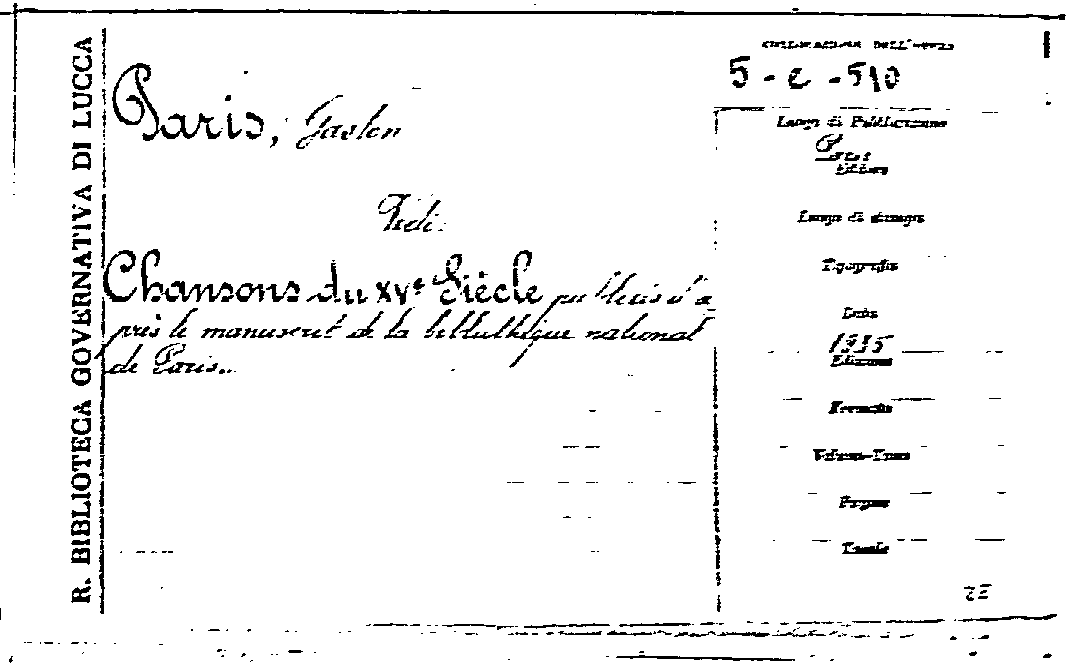 R. BIBLIOTECA GOVERNATIVA DI LUCCA
Paris, Gaston
Vedi:
Chansons du XVe Siècle publiés d'a
près le manuscrit de la bibliothèque national
de Paris..
COLLOCAZIONE DELL'OPERA
5 - C - 510
Luogo di Pubblicazione
Editore
Luogo di stampa
Tipografia
Data
1935
Edizione
Formato
Volume-Tomo
Pagine
Tavole